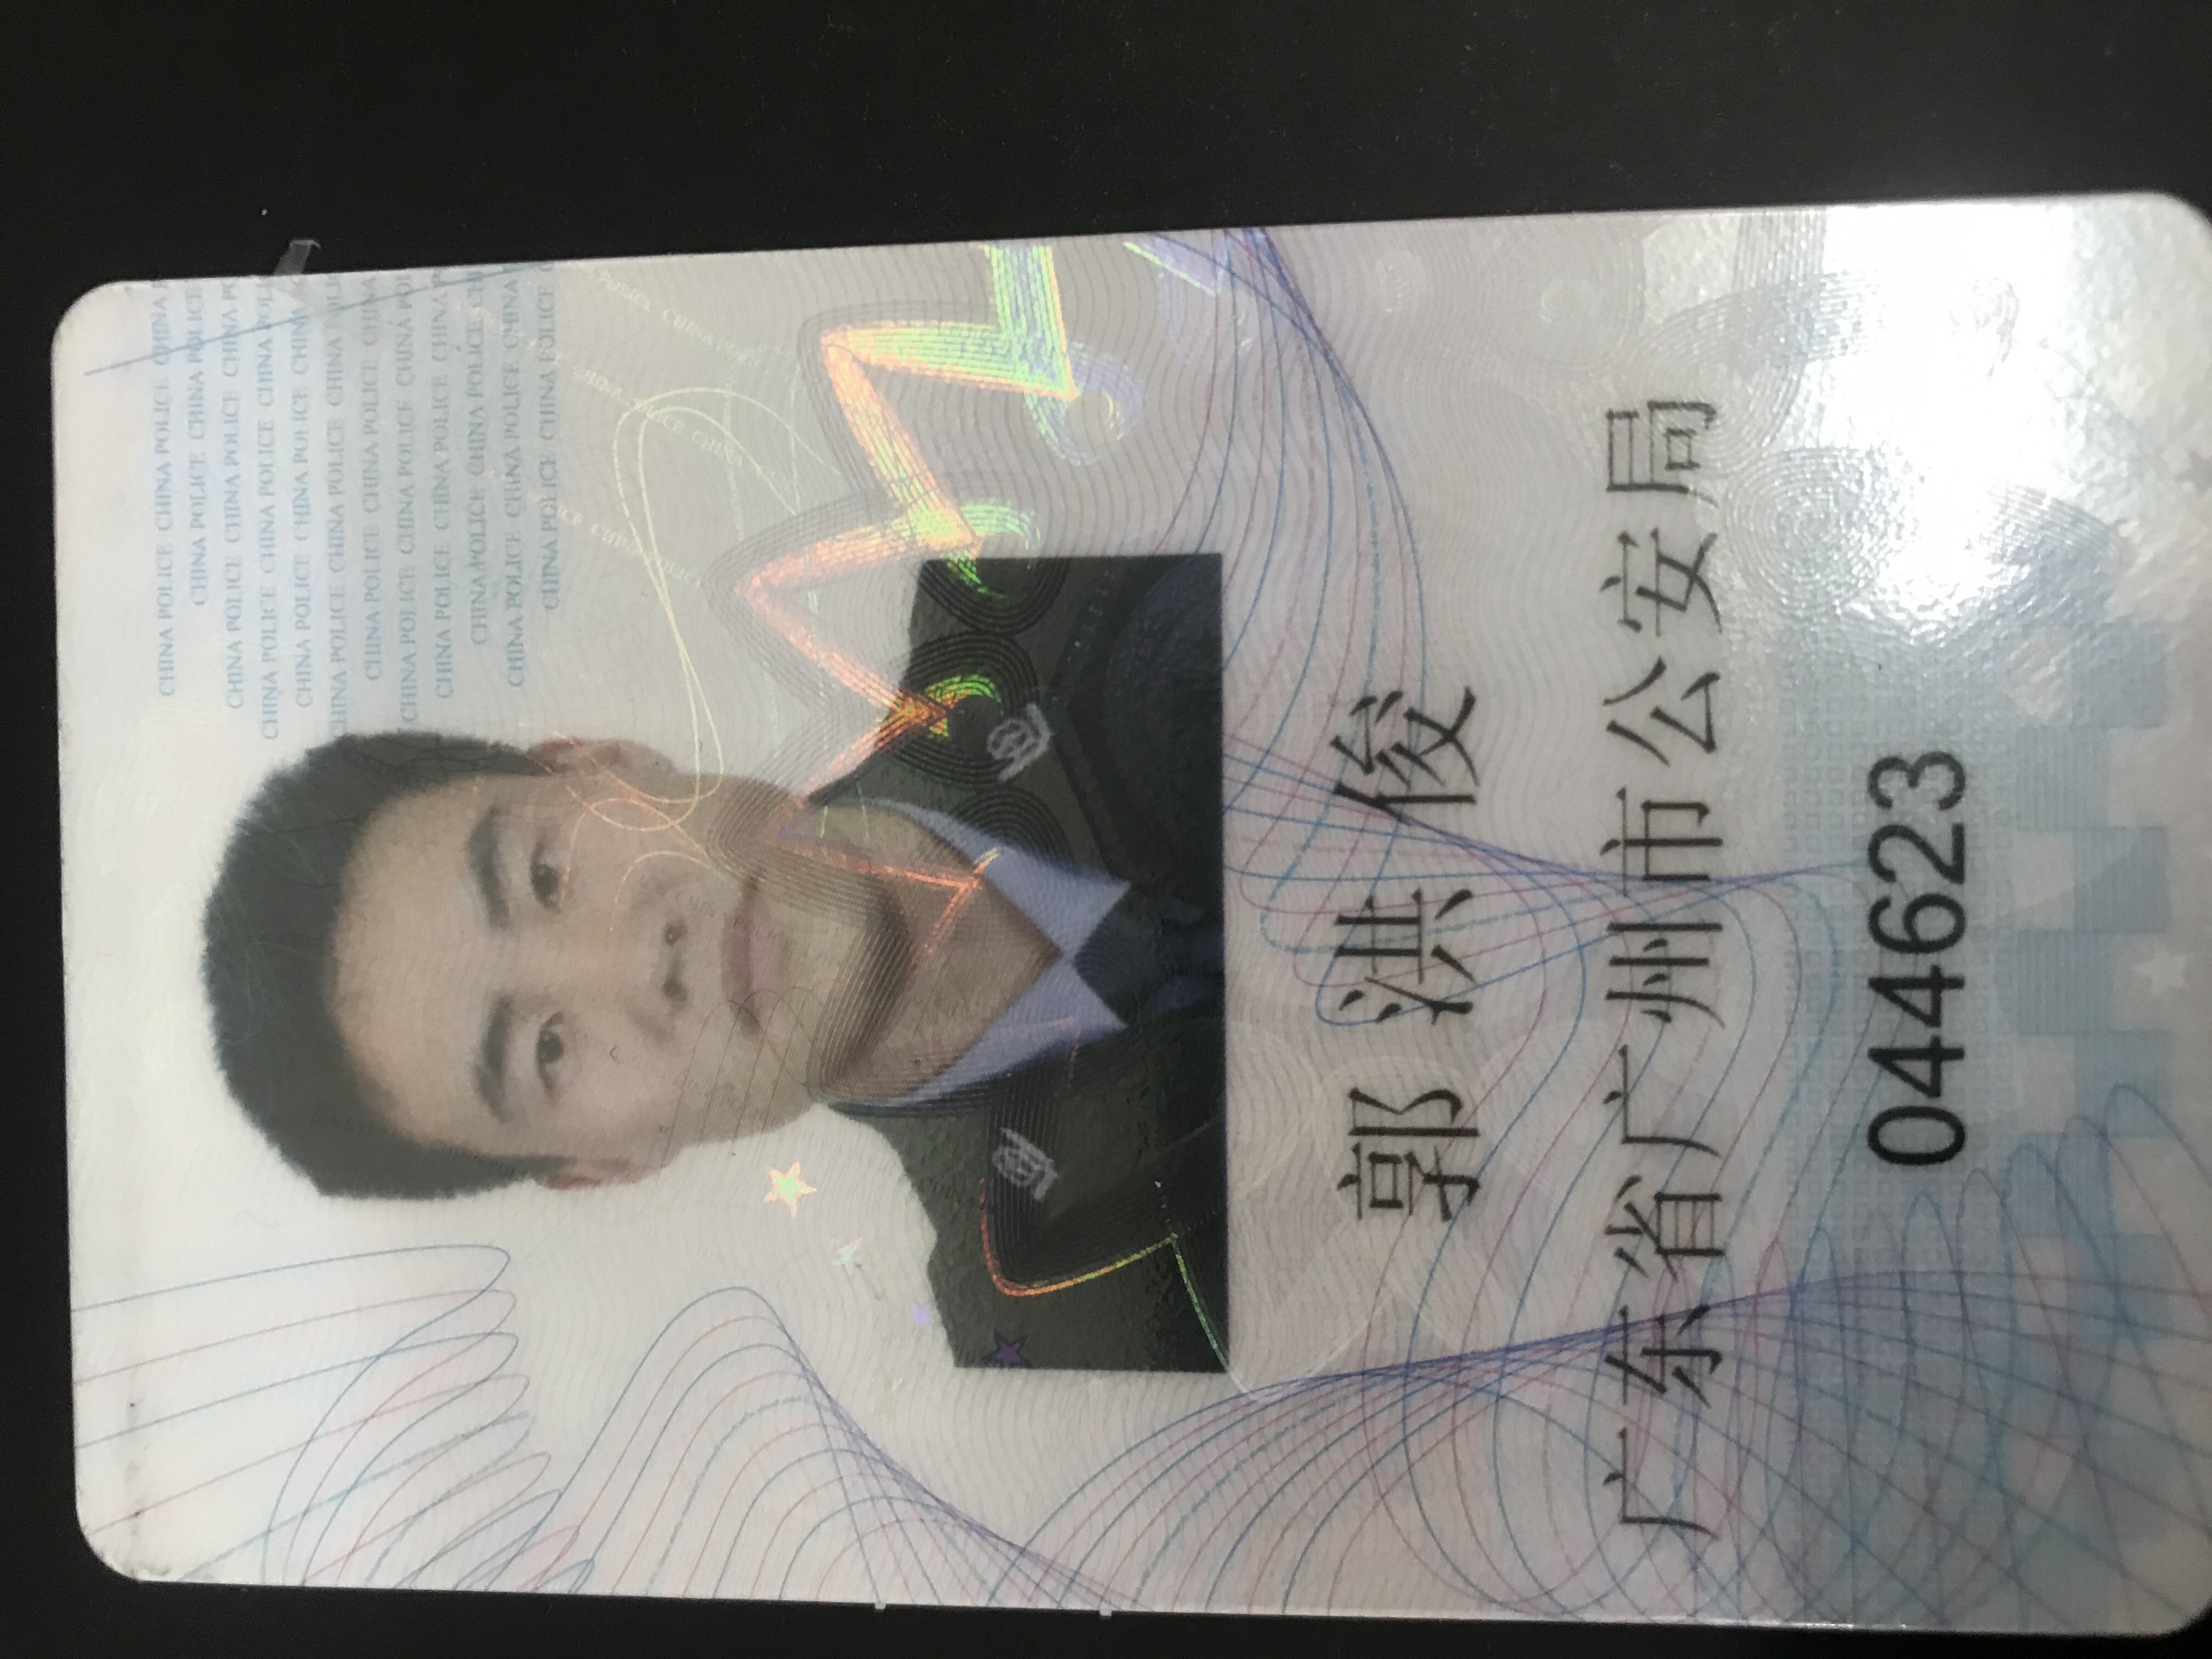 CHINA POLICE CHINA POLICE CHINA
CHINA POLICE CHINA POLIC
CHINA POLICE CHINA POLICE CHINA PO
CHINA POLICE CHINA POLICE CHINA POLI
CHINA POLICE CHINA POLICE CHINA
CHINA POLICE CHINA POLICE CHINA POLI
CHINA POLICE CHINA POLICE CHINA
CHINA POLICE CHINA POLICE CHINA POI
CHINA POLICE CHINA POLICE CHINA
CHINA POLICE CHINA POLICE CHI
CHINA POLICE CHINA POLICE CHINA
CHINA POLICE CHINA POLICE
郭洪俊
广东省广州市公安局
044623